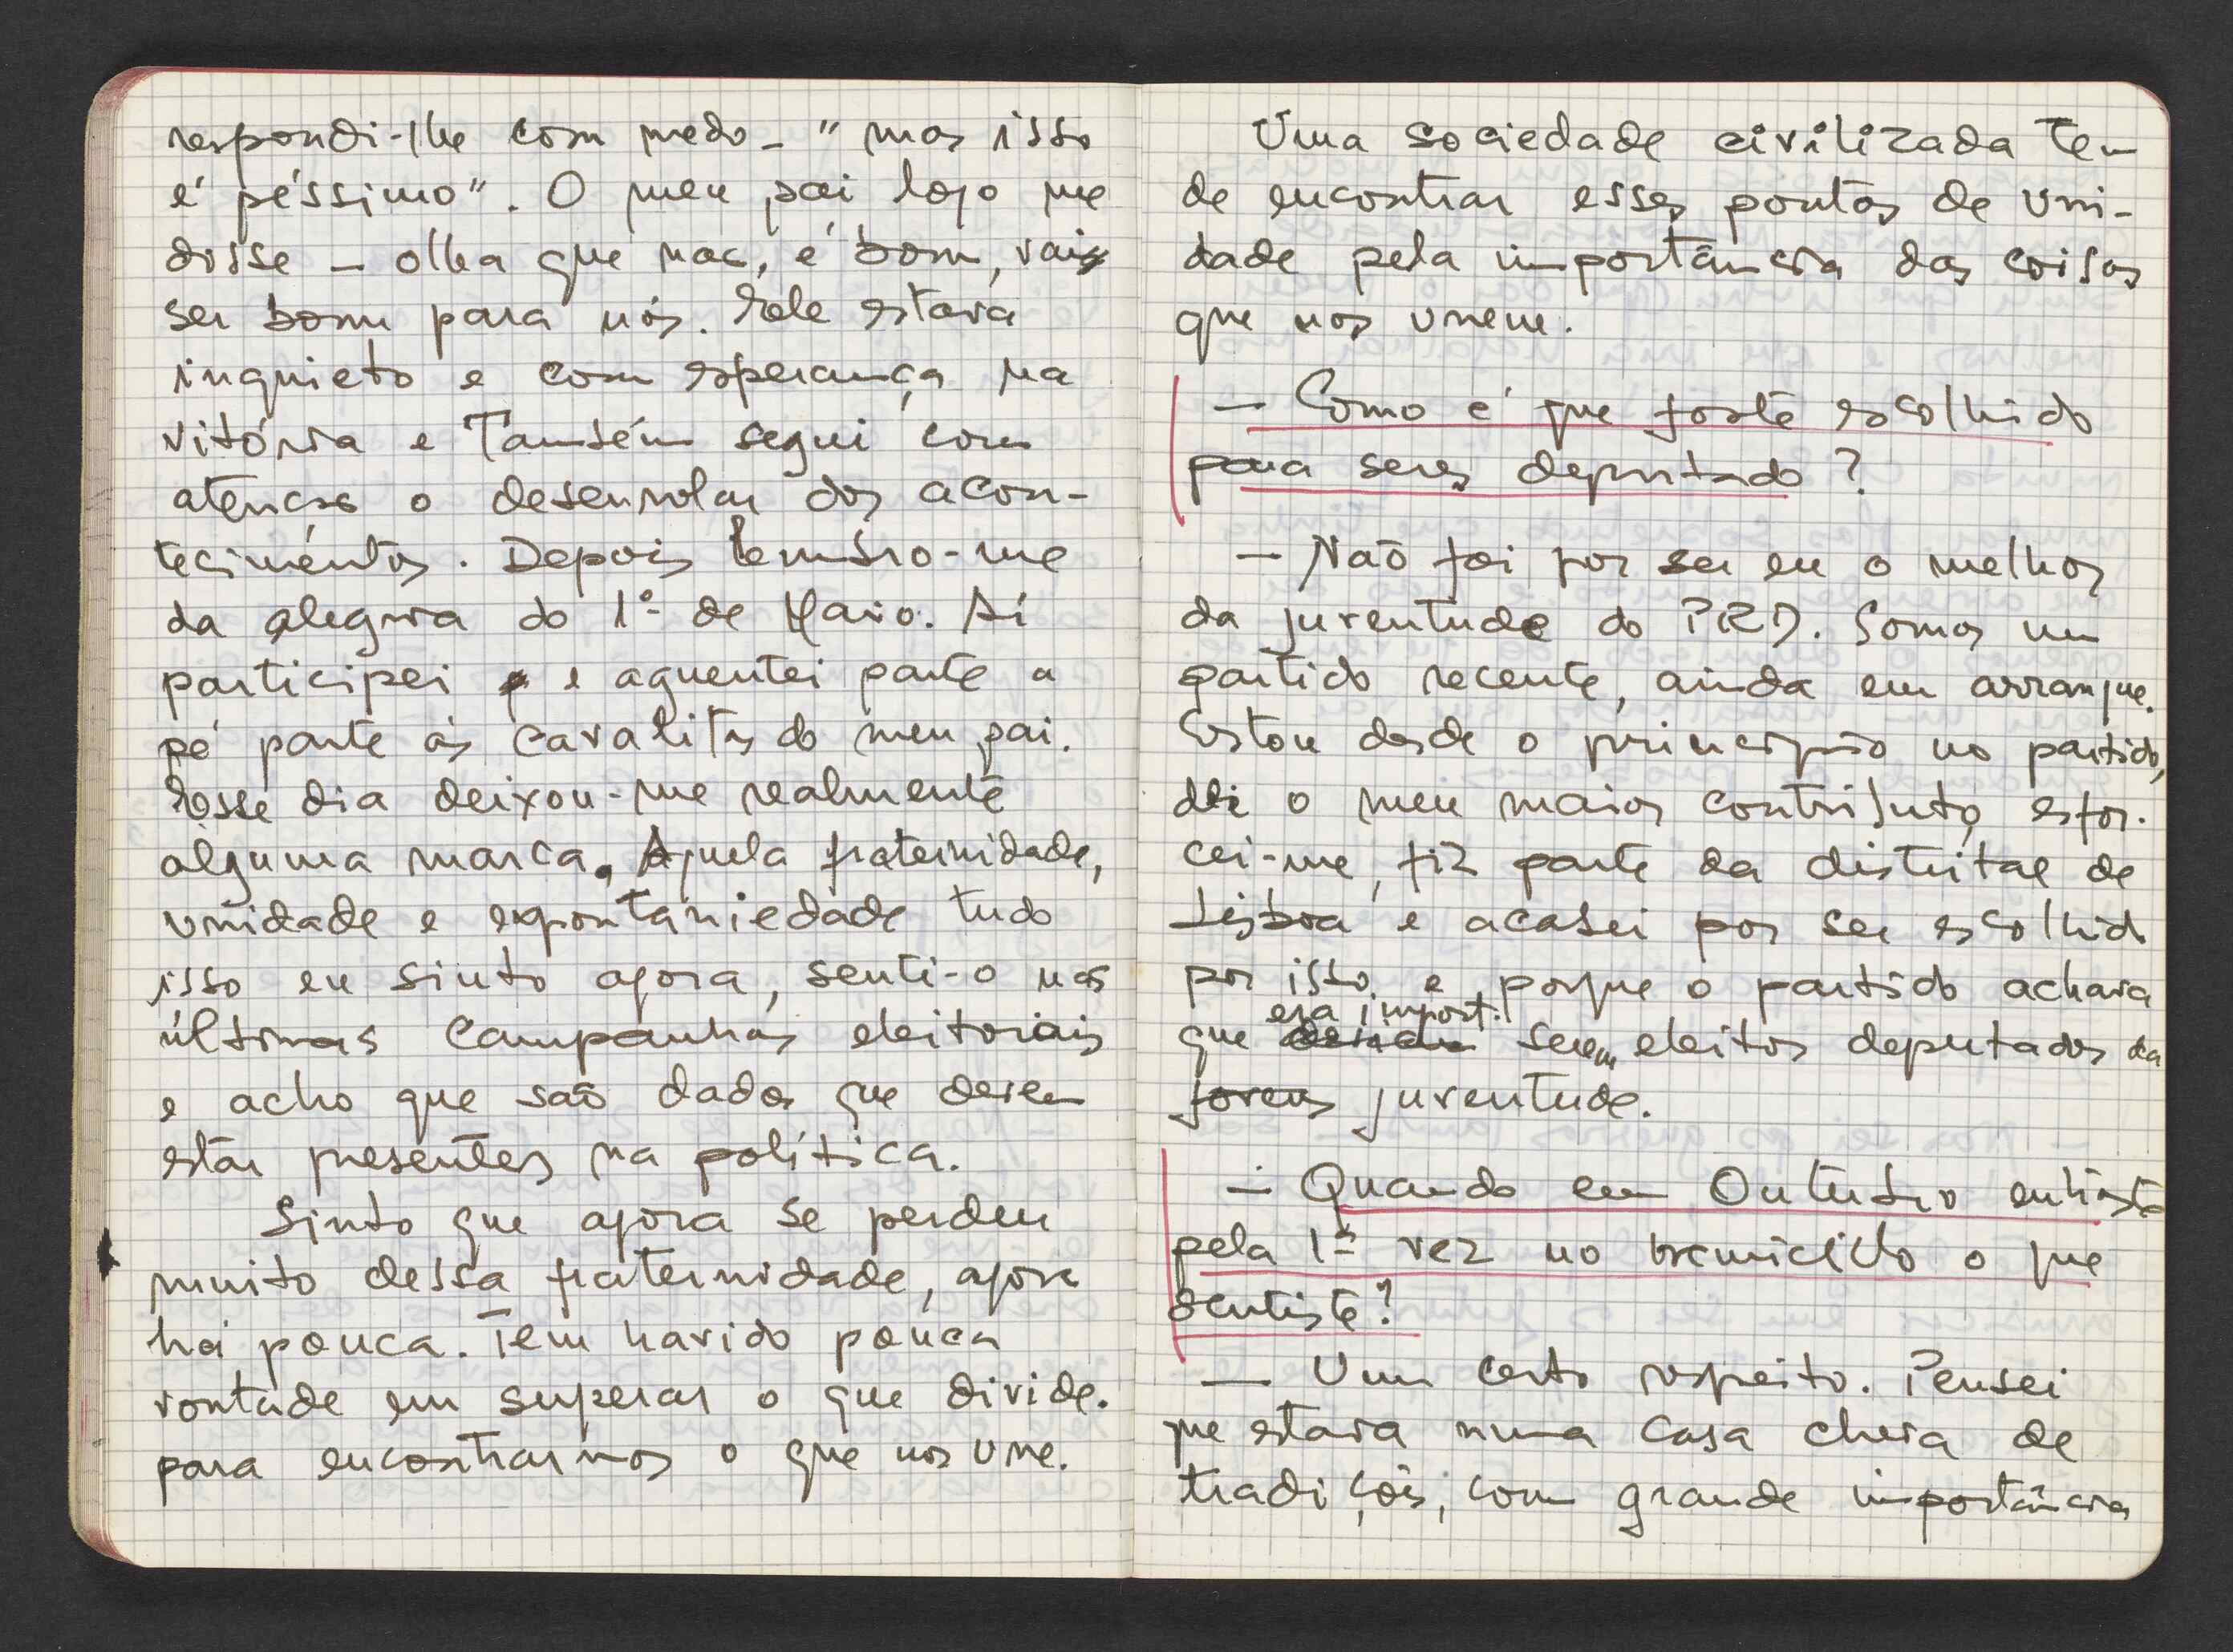 respondi-lhe com medo - "mas isso
é péssimo". O meu pai logo me
disse - olha que não, é bom, vai
ser bom para nós. Ele estava
inquieto e com esperança na
vitória e também segui com
atenção o desenrolar dos acon-
tecimentos. Depois lembro-me
da alegria do 1º de Maio. Aí
participei e aguentei parte a
pé parte às cavalitas do meu pai.
Esse dia deixou-me realmente
alguma marca. Aquela fraternidade,
unidade e espontaniedade tudo
isso eu sinto agora, senti-o nas
últimas campanhas eleitoriais
e acho que são dados que devem
estar presentes na política.
Sinto que agora se perdeu
muito dessa fraternidade, agora
há pouca. Tem havido pouca
vontade em superar o que divide.
para encontrarmos o que nos une.
Uma sociedade civilizada tem
de encontrar esses pontos de uni-
dade pela importância das coisas
que nos unem.
- Como é que foste escolhido
para seres deputado?
- Não foi por ser eu o melhor
da juventude do PRD. Somos um
partido recente, ainda em arranque.
Estou desde o princípio no partido,
dei o meu maior contributo, esfor-
cei-me, fiz parte da distrital de
Lisboa e acabei por ser escolhido
por isso e porque o partido achava
que era import. serem eleitos deputados da
jovens juventude.
- Quando em Outubro entraste
pela 1ª vez no hemiciclo o que
sentiste?
- Um certo respeito. Pensei
que estava numa casa cheia de
tradições, com grande importância